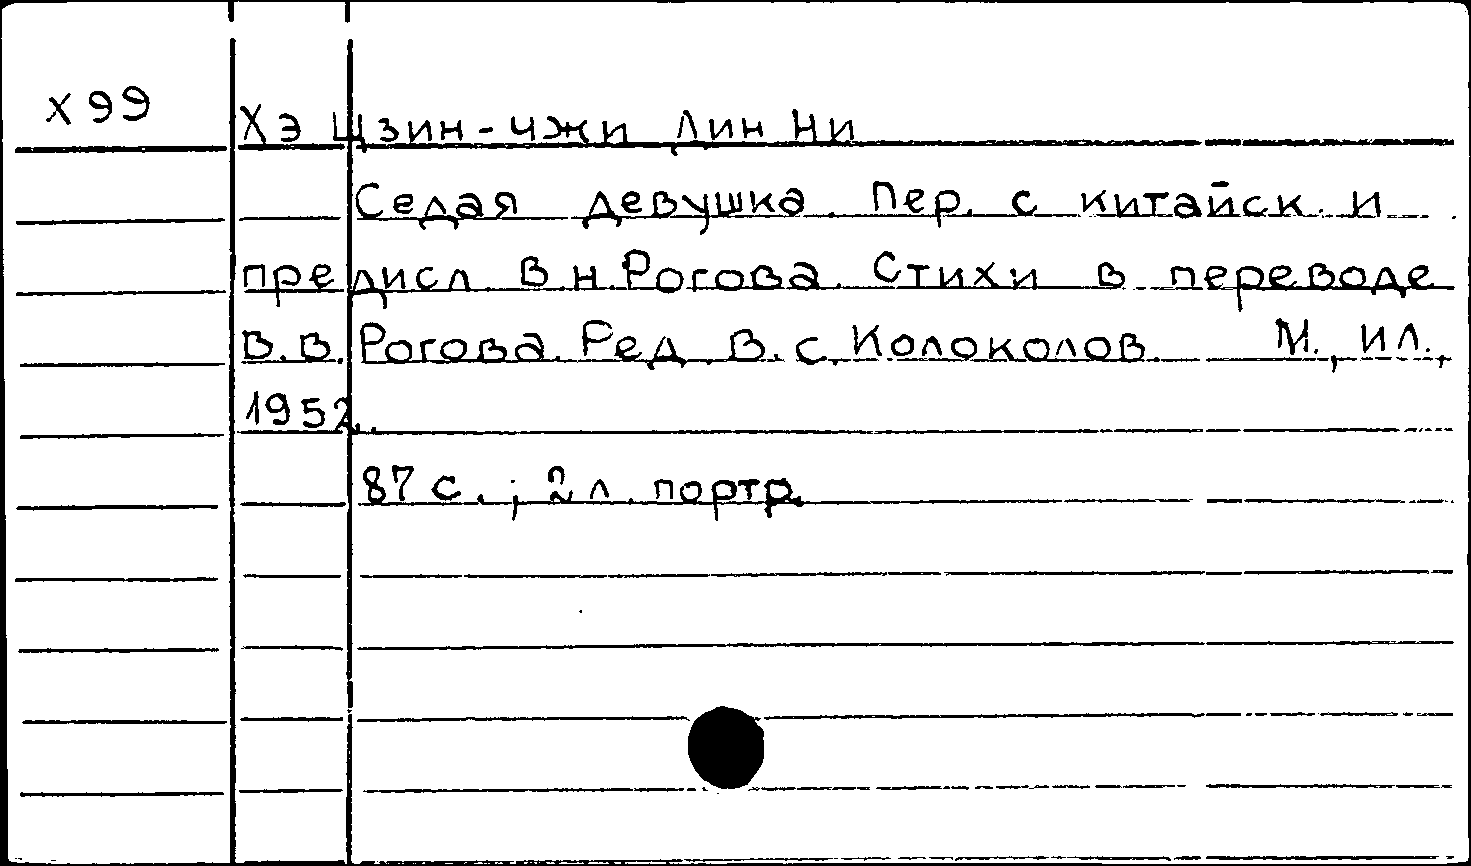 Х 99
Хэ Цзин-чжи Лин Ни
Седая девушка. Пер. с китайск. и
предисл. В.Н.Рогова. Стихи в переводе
В.В. Рогова. Ред. В.С. Колоколов. М., ИЛ.,
1952.
87 с.; 2 л. портр.